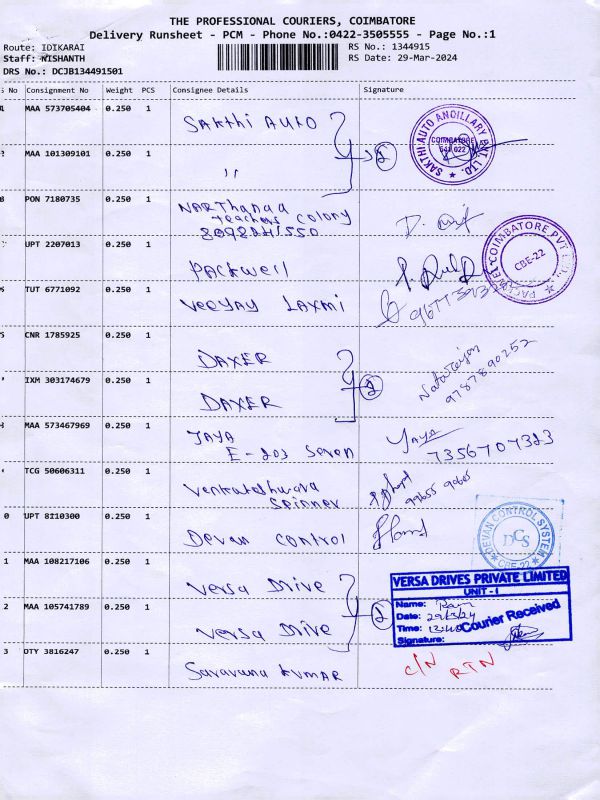 THE PROFESSIONAL COURIERS, COIMBATORE
Delivery Runsheet - PCM - Phone No.:0422-3505555 - Page No.:1
Route: IDIKARAI
RS No.: 1344915
Staff: NISHANTH
RS Date: 29-Mar-2024
DRS No.: DCJB134491501
S No Consignment No Weight PCS Consignee Details Signature
1 MAA 573705404 0.250 1 Sakthi Auto
2 MAA 101309101 0.250 1 " 2
SAKTHI AUTO ANCILLARY PVT. LTD.
COIMBATORE
641 022
PON 7180735 0.250 1 NARThanaa
teachers colony
UPT 2207013 0.250 1 Packwell
COIMBATORE PVT
CBE-22
TUT 6771092 0.250 1 Veejay Laxmi
CNR 1785925 0.250 1 DAXER
IXM 303174679 0.250 1 DAXER 2
9787890252
MAA 573467969 0.250 1 JAYA Jaya
E-203 Seven 7356707323
TCG 50606311 0.250 1 Venkateshwara
Spinner
0 UPT 8110300 0.250 1 Devan control
DEVAN CONTROL SYSTEM
DCS
CBE-22
1 MAA 108217106 0.250 1 Versa Drive
2 MAA 105741789 0.250 1 Versa Drive 2
VERSA DRIVES PRIVATE LIMITED
UNIT - I
Name: Ram
Date: 29/3/24
Time:
Courier Received
Signature:
3 OTY 3816247 0.250 1 Saravana kumar C/N RTN